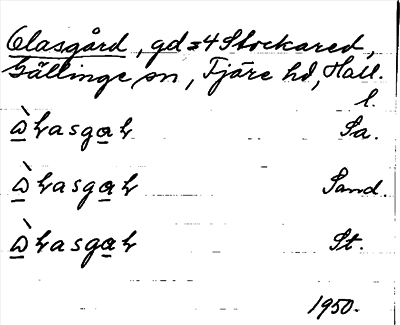 Olasgård, gd = 4 Stockared,
Gällinge sn, Fjäre hd, Hall.
l.
Sa.
Sand.
St.
1950.